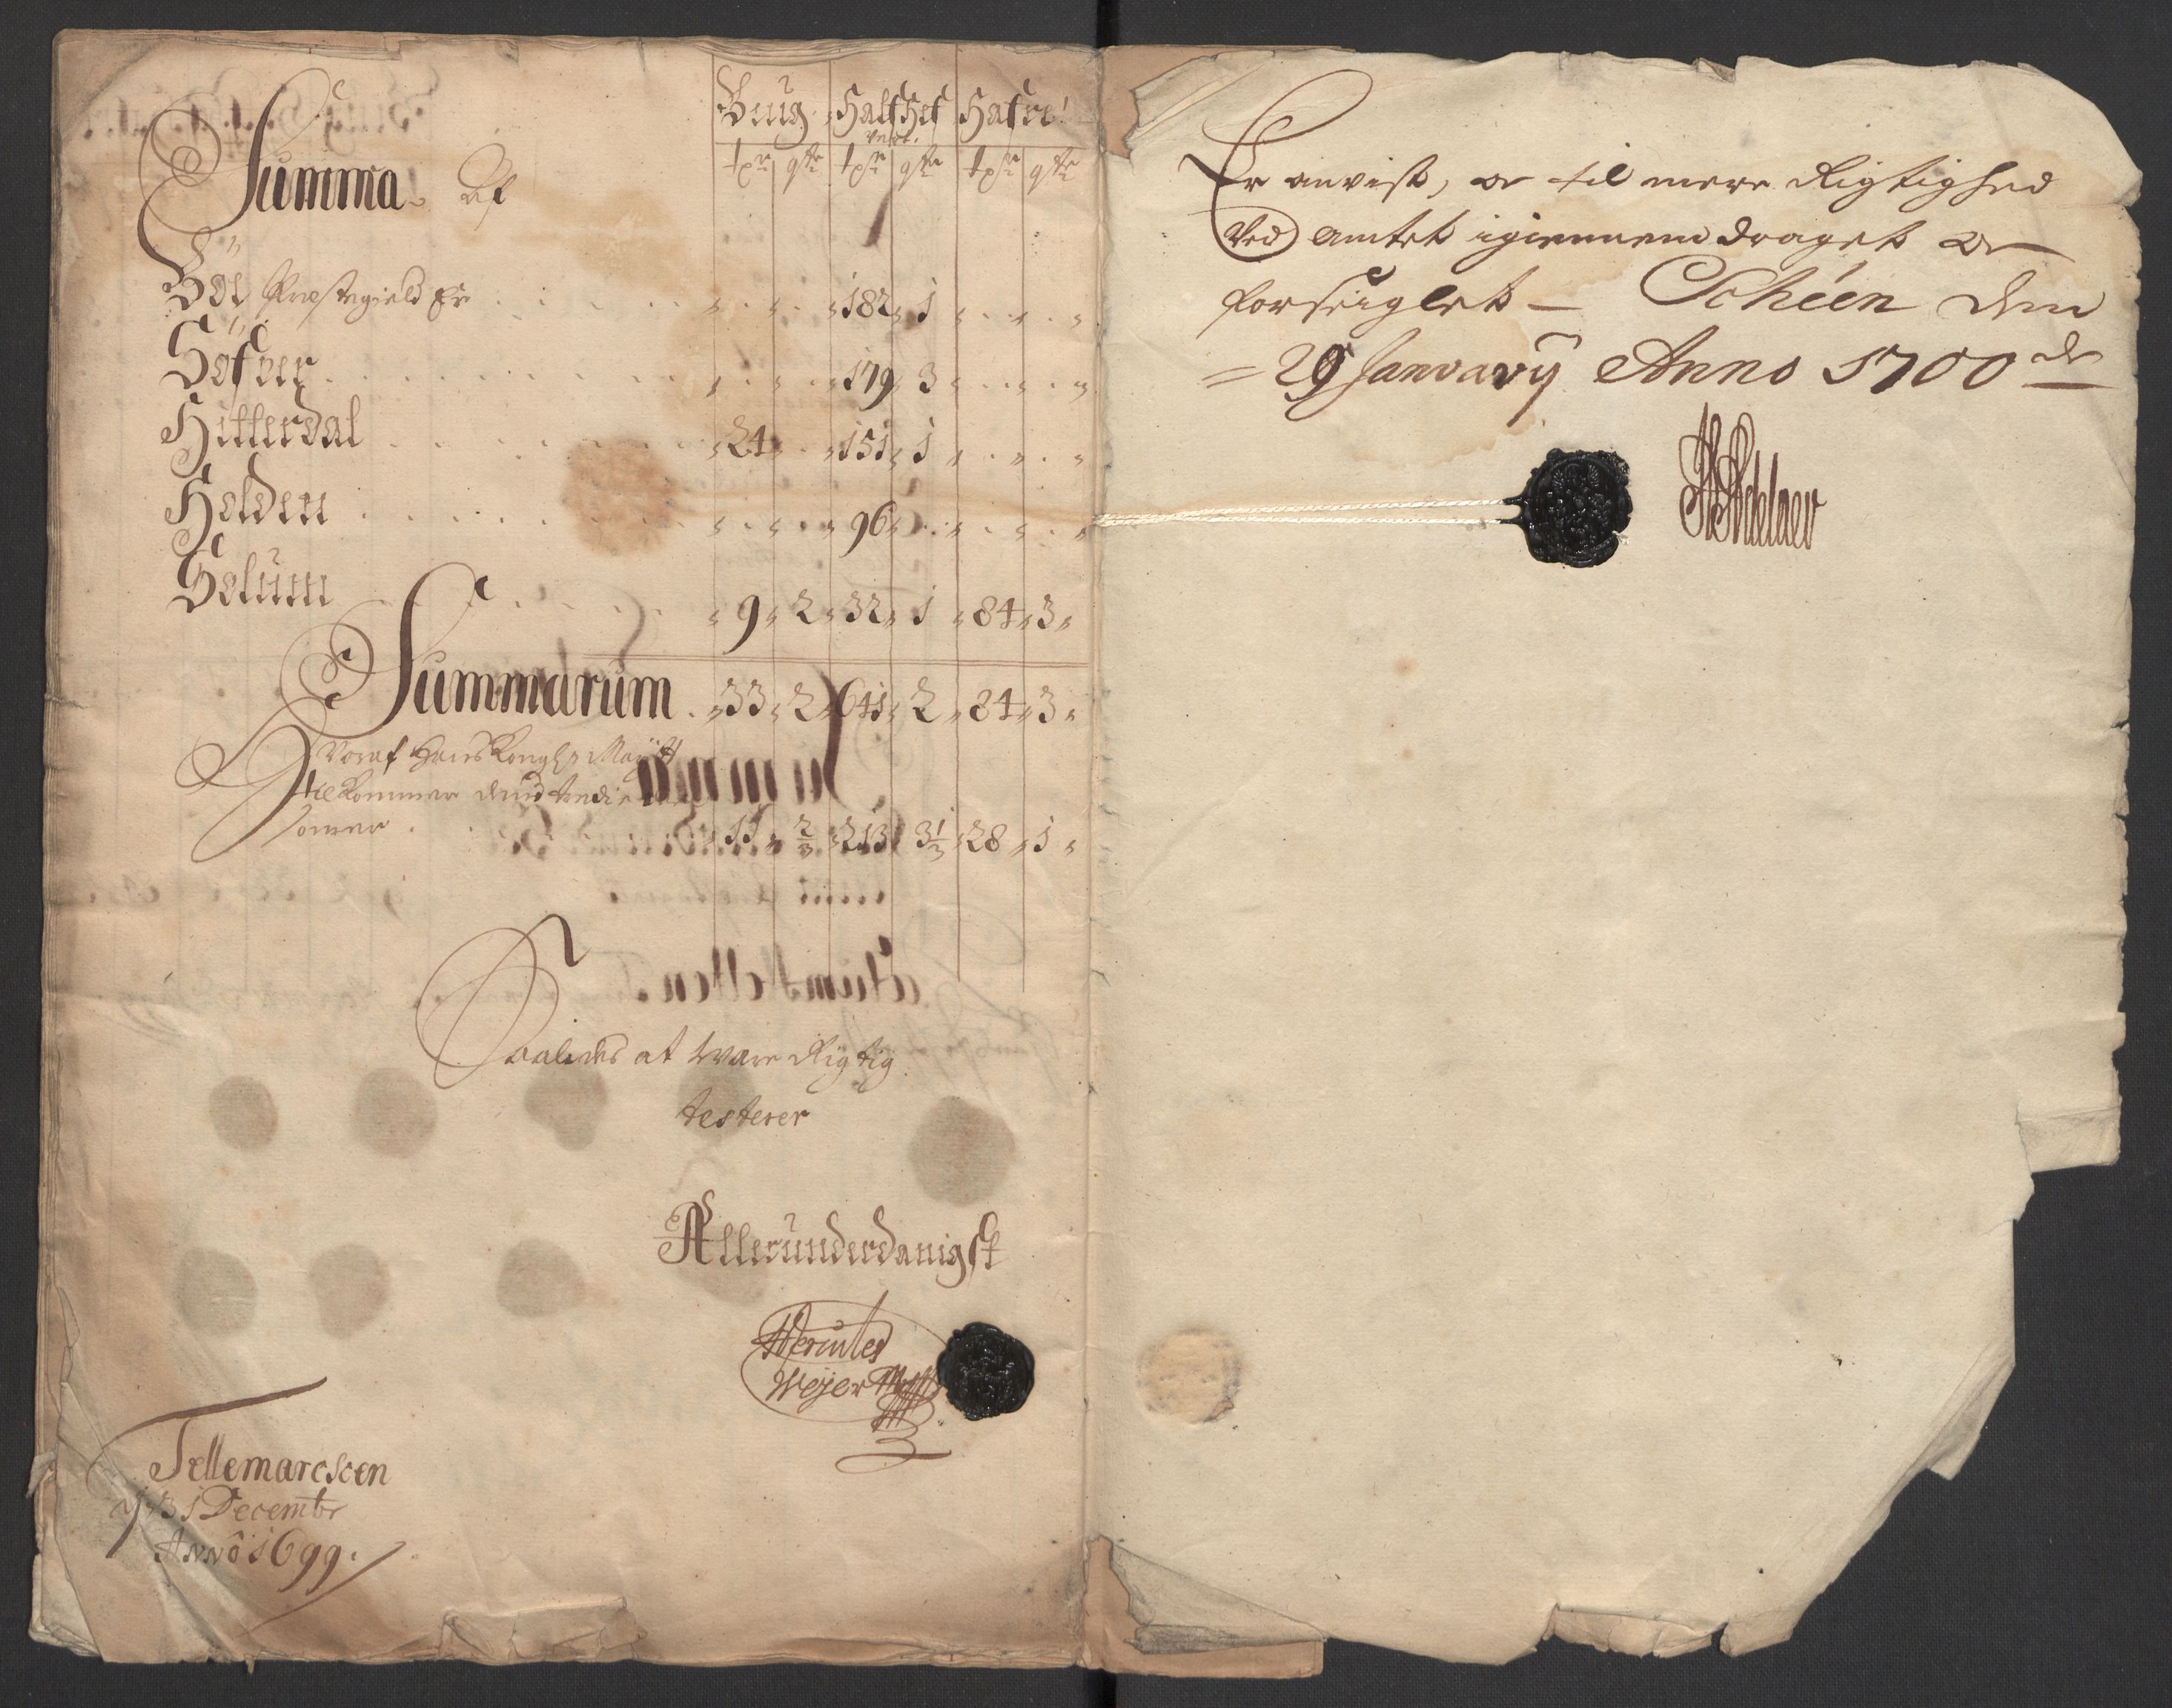 Biug Halfhef Hafre
verk.
tpr qtr tpr qtr tpr qtr
Summa Af
Böe Præstegield Er 182 1
Söfver 179 3
Hitterdal 24 151 1
Holden 96
Solum 9 2 32 1 84 3
Summarum 33 2 641 2 84 3
Voraf Hans Kongl: May:tt
tilkommer dend tredie
11 2/3 213 3 1/3 28 1
Saaledes at være Rigtig
testerer
Allerunderdanigst
Hercules
Weÿer
Tellemarcken
31 Decembr
Anno 1699.
Er anvist, og til mere Rigtighed
Ved Amtet igiennemdraget og
forseiglet – Schéen den
29 Januarÿ Anno 1700
Adelaer